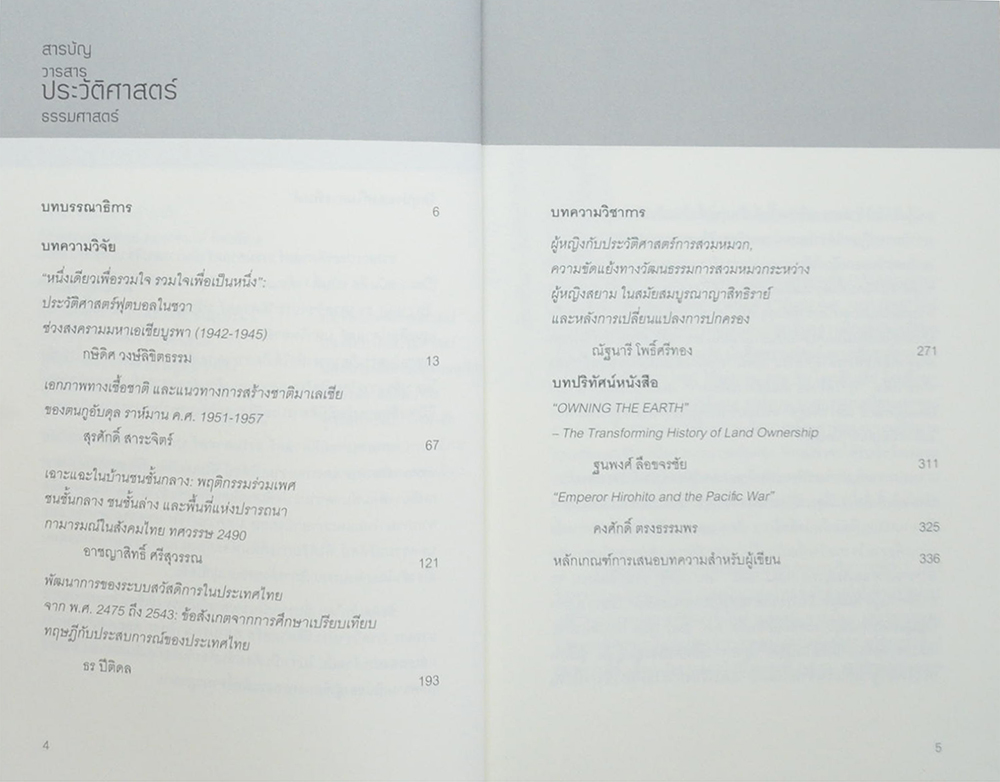 สารบัญ
วารสาร
ประวัติศาสตร์
ธรรมศาสตร์
บทบรรณาธิการ 6
บทความวิจัย
“หนึ่งเดียวเพื่อรวมใจ รวมใจเพื่อเป็นหนึ่ง”:
ประวัติศาสตร์ฟุตบอลในชวา
ช่วงสงครามมหาเอเชียบูรพา (1942-1945)
กษิดิศ วงษ์ลิขิตธรรม 13
เอกภาพทางเชื้อชาติ และแนวทางการสร้างชาติมาเลเซีย
ของตนกูอับดุล ราห์มาน ค.ศ. 1951-1957
สุรศักดิ์ สาระจิตร์ 67
เอาะแอะในบ้านชนชั้นกลาง: พฤติกรรมร่วมเพศ
ชนชั้นกลาง ชนชั้นล่าง และพื้นที่แห่งปรารถนา
กามารมณ์ในสังคมไทย ทศวรรษ 2490
อาชญาสิทธิ์ ศรีสุวรรณ 121
พัฒนาการของระบบสวัสดิการในประเทศไทย
จาก พ.ศ. 2475 ถึง 2543: ข้อสังเกตจากการศึกษาเปรียบเทียบ
ทฤษฎีกับประสบการณ์ของประเทศไทย
ธร ปีติดล 193
4
บทความวิชาการ
ผู้หญิงกับประวัติศาสตร์การสวมหมวก,
ความขัดแย้งทางวัฒนธรรมการสวมหมวกระหว่าง
ผู้หญิงสยาม ในสมัยสมบูรณาญาสิทธิราชย์
และหลังการเปลี่ยนแปลงการปกครอง
ณัฐนารี โพธิ์ศรีทอง 271
บทปริทัศน์หนังสือ
“OWNING THE EARTH”
– The Transforming History of Land Ownership
ฐนพงศ์ ลือขจรชัย 311
“Emperor Hirohito and the Pacific War”
คงศักดิ์ ตรงธรรมพร 325
หลักเกณฑ์การเสนอบทความสำหรับผู้เขียน 336
5